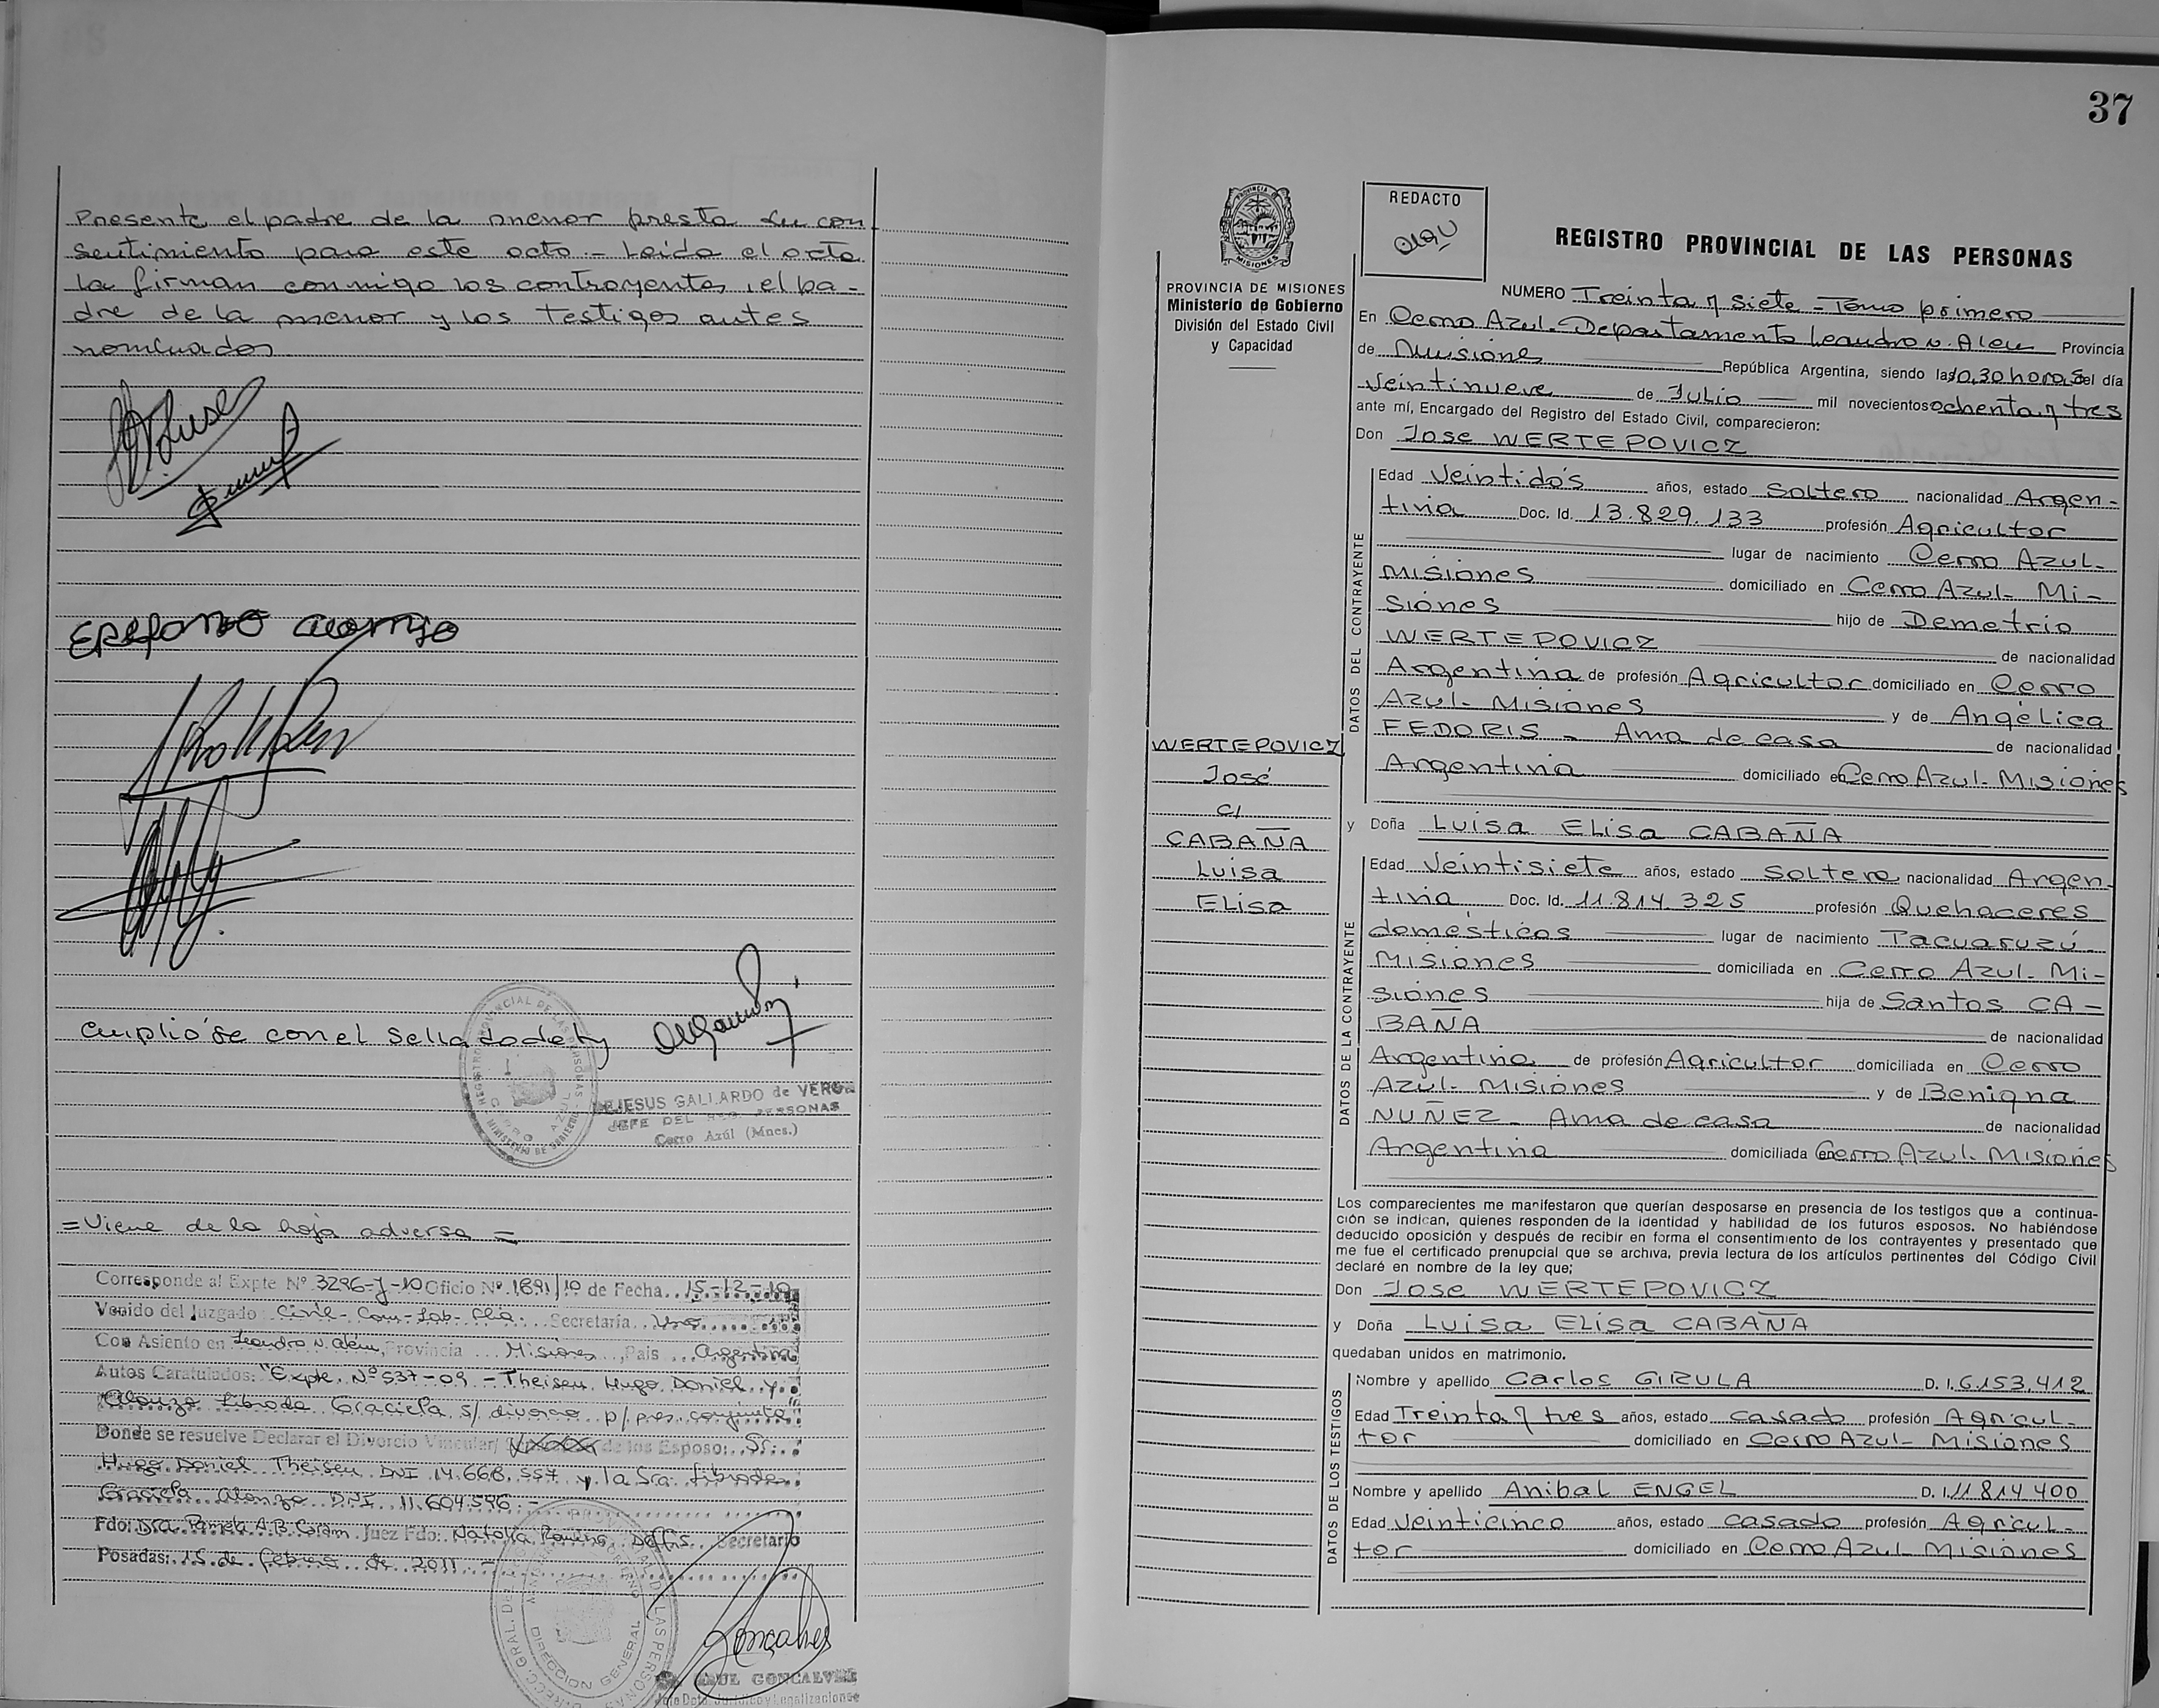 Presente el padre de la menor presta su con
sentimiento para este acto.- Leída el acta
la firman conmigo los contrayentes, el pa-
dre de la menor y los testigos antes
nominados
cumplió se con el sellado de ley
REGISTRO PROVINCIAL DE LAS PERSONAS
MINISTERIO DE GOBIERNO
CERRO AZUL
DEJESUS GALLARDO de VERGA
JEFE DEL REG. PERSONAS
Cerro Azúl (Mnes.)
= Viene de la hoja adversa =
Corresponde al Expte Nº 3296-J-10 Oficio Nº 1891/10 de Fecha 15-12-10
Venido del Juzgado Civil-Com-Lab-Flia. Secretaría Uno
Con Asiento en Leandro N. Além, Provincia Misiones, Pais Argentina
Autos Caratulados: "Expte. Nº 537-09 - Theisen Hugo Daniel y
Alonzo Librada Graciela s/ divorcio p/ pres. conjunta"
Donde se resuelve Declarar el Divorcio Vincular/ de los Esposo: Sr.
Hugo Daniel Theisen DNI 14.668.557 y la Sra. Librada
Graciela Alonzo DNI 11.604.596.-
Fdo: Dra. A.B. Juez Fdo: Natalia Romina Secretario
Posadas: 15 de febrero de 2011.-
DIRECC. GRAL. DE LAS PERSONAS
DIRECCION GENERAL
Goncalves
RAUL GONCALVES
Jefe Dpto. Jurídico y Legalizaciones
37
PROVINCIA DE MISIONES
Ministerio de Gobierno
División del Estado Civil
y Capacidad
REDACTO
REGISTRO PROVINCIAL DE LAS PERSONAS
NUMERO Treinta y siete - Tomo primero
En Cerro Azul - Departamento Leandro N. Alem Provincia
de Misiones República Argentina, siendo las 10,30 horas del día
veintinueve de Julio mil novecientos ochenta y tres
ante mí, Encargado del Registro del Estado Civil, comparecieron:
Don Jose WERTEPOVICZ
DATOS DEL CONTRAYENTE
Edad Veintidós años, estado Soltero nacionalidad Argen-
tina Doc. Id. 13.829.133 profesión Agricultor
lugar de nacimiento Cerro Azul-
Misiones domiciliado en Cerro Azul- Mi-
siones hijo de Demetrio
WERTEPOVICZ de nacionalidad
Argentina de profesión Agricultor domiciliado en Cerro
Azul- Misiones y de Angélica
FEDORIS - Ama de casa de nacionalidad
Argentina domiciliado en Cerro Azul- Misiones
WERTEPOVICZ
José
c/
CABAÑA
Luisa
Elisa
y Doña Luisa Elisa CABAÑA
DATOS DE LA CONTRAYENTE
Edad Veintisiete años, estado Soltera nacionalidad Argen-
tina Doc. Id. 11.814.325 profesión Quehaceres
domésticos lugar de nacimiento Tacuaruzú
Misiones domiciliada en Cerro Azul- Mi-
siones hija de Santos CA-
BAÑA de nacionalidad
Argentina de profesión Agricultor domiciliada en Cerro
Azul- Misiones y de Benigna
NUÑEZ - Ama de casa de nacionalidad
Argentina domiciliada en Cerro Azul- Misiones
Los comparecientes me manifestaron que querían desposarse en presencia de los testigos que a continua-
ción se indican, quienes responden de la identidad y habilidad de los futuros esposos. No habiéndose
deducido oposición y después de recibir en forma el consentimiento de los contrayentes y presentado que
me fue el certificado prenupcial que se archiva, previa lectura de los artículos pertinentes del Código Civil
declaré en nombre de la ley que;
Don Jose WERTEPOVICZ
y Doña Luisa Elisa CABAÑA
quedaban unidos en matrimonio.
DATOS DE LOS TESTIGOS
Nombre y apellido Carlos GIRULA D. I. 6.153.412
Edad Treinta y tres años, estado casado profesión Agricul-
tor domiciliado en Cerro Azul- Misiones
Nombre y apellido Anibal ENGEL D. I. 11.814.400
Edad Veinticinco años, estado casado profesión Agricul-
tor domiciliado en Cerro Azul Misiones